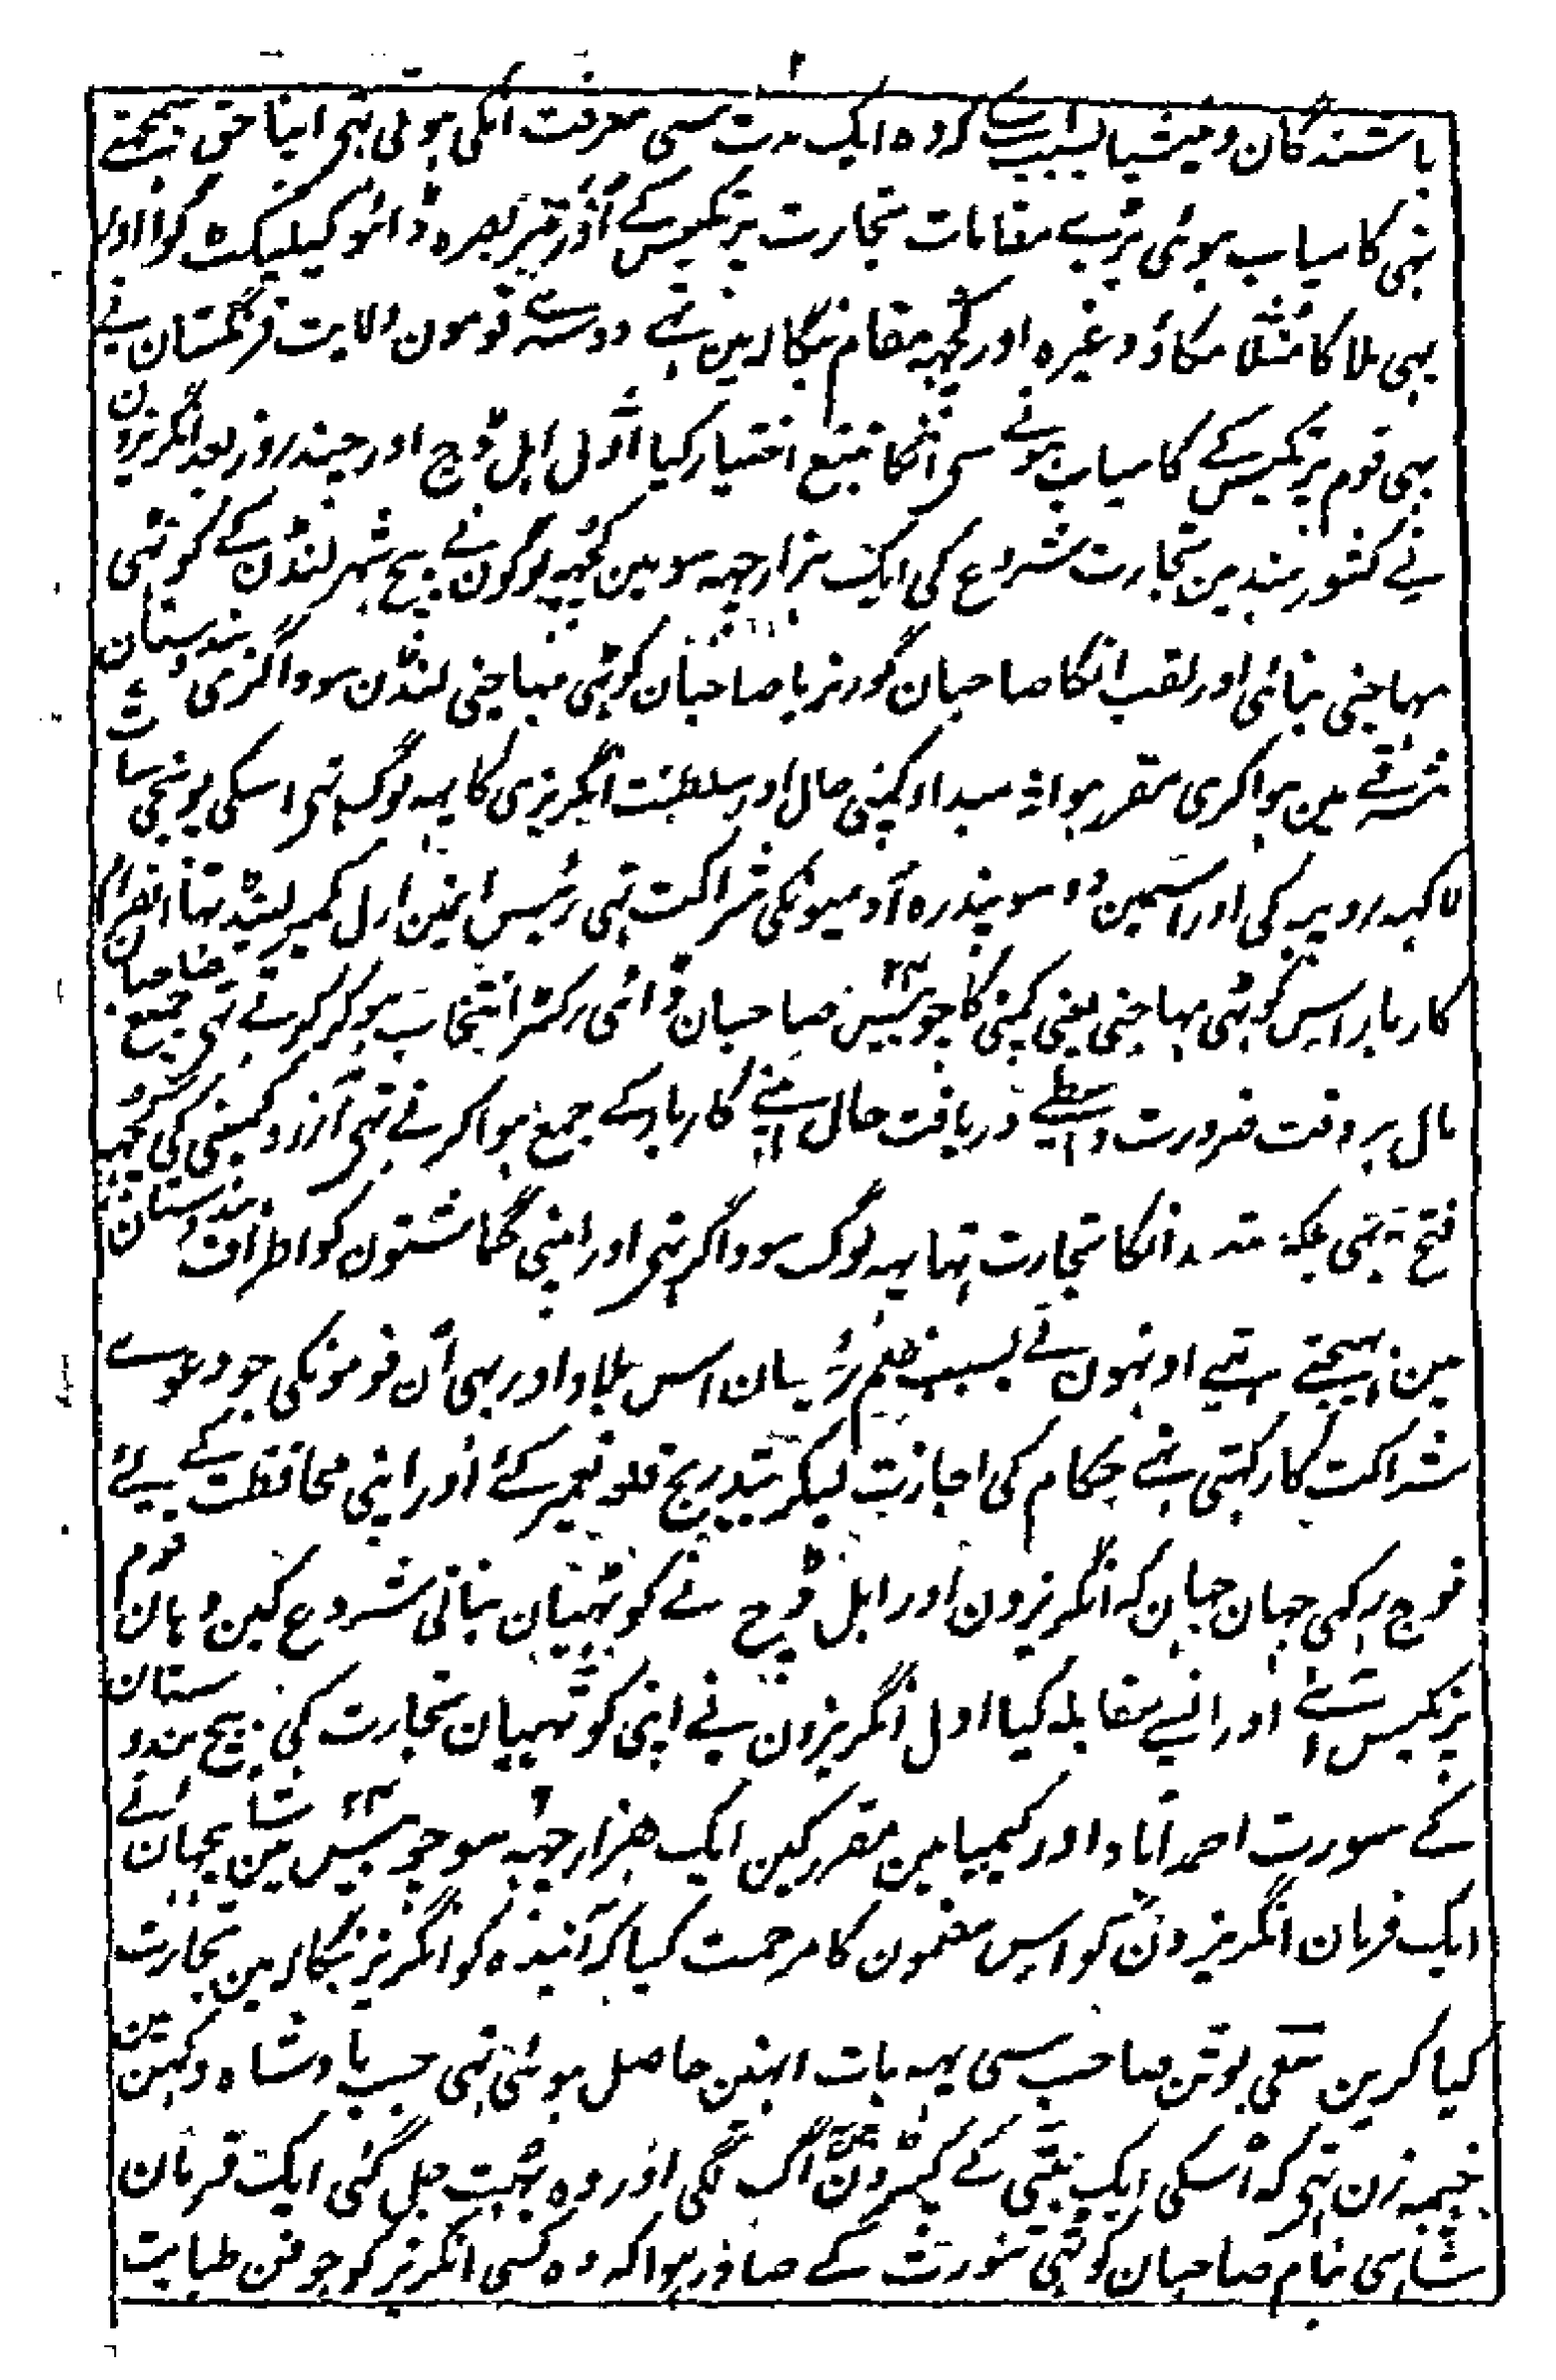 ۲
باشندگان وینشیا بسبب اسکے کہ وہ ایک مدت سی معرفت انکی ہوئی تہی اپنا حق سمجہتے
تہی کامیاب ہوئی بڑے بڑے مقامات تجارت پرتکیس کے اور بصرہ ڈائو کیلیکٹ گوا اور
بہی ملاکا مثلا مکاؤ وغیرہ اور کچہہ مقام بنگالہ مین تہے دوسرے قومون ولایت فرنگستان نے
بہی قوم پرتکیس کے کامیاب ہونے سی انکا تتبع اختیار کیا اول اہل ڈچ اور چند روز بعد انگریزون
نے کشور ہند مین تجارت شروع کی ایک ہزار چہہ سو مین کچہہ لوگون نے بیچ شہر لنڈن کے کوٹہی
مہاجنی بنائی اور لقب انکا صاحبان گورنر یا صاحبان کوٹہی مہاجنی لنڈن سوداگری ہندوستان
شرقے مین ہوا کری مقرر ہوا مبداء کمپنی حال اور سلطنت انگریزی کا یہہ لوگ تہی اسکی پونجی سات
لاکہہ روپیہ کی اور اسمین دو سو پندرہ آدمیونکی شراکت تہی رئیس انمین ارل کمبرلینڈ تہا انصرام
کاربار اس کوٹہی مہاجنی یعنی کمپنی کا چوبیس ۲۴ صاحبان ڈائی رکٹر انتخاب ہوکر کرتے تہی جمیع صاحبان
مال بر وقت ضرورت واسطے دریافت حال اپنے کاربار کے جمع ہوا کرتے تہی آرزو کمپنی کی کچہہ
فتح نہ تہی بلکہ مقصد انکا تجارت تہا یہہ لوگ سوداگر تہی اور اپنی گماشتون کو اطراف ہندوستان
مین بہیجتے تہے اونہون نے بسبب ظلم رئیسان اس بلاد اور بہی ان قومونکی جو دعوے
شراکت کا رکہتی تہے حکام کی اجازت لیکر بتدریج قلعہ تعمیر کئے اور اپنی محافظت کے لیے
فوج رکہی جہان جہان کہ انگریزون اور اہل ڈچ نے کوٹہیان بنانی شروع کین وہان قوم
پرتکیس اٹہے اور انسے مقابلہ کیا اول انگریزون نے اپنی کوٹہییان تجارت کی بیچ ہندوستان
کے سورت احمدآباد اور کیمبیا مین مقرر کین ایک ہزار چہہ ۶ سو چوبیس ۲۴ مین شاہجہان نے
ایک فرمان انگریزون کو اس مضمون کا مرحمت کیا کہ آئیندہ کو انگریز بنگالہ مین تجارت
کیا کرین سعی بوٹن صاحب سی یہہ بات انہین حاصل ہوئی تہی جب بادشاہ دکہن مین
خیمہ زن تہی کہ اسکی ایک بیٹی کے کپڑون مین آگ لگی اور وہ بہت جل گئی ایک فرمان
شاہی بنام صاحبان کوٹہی سورت کے صادر ہوا کہ وہ کسی انگریز کو جو فن طبابت